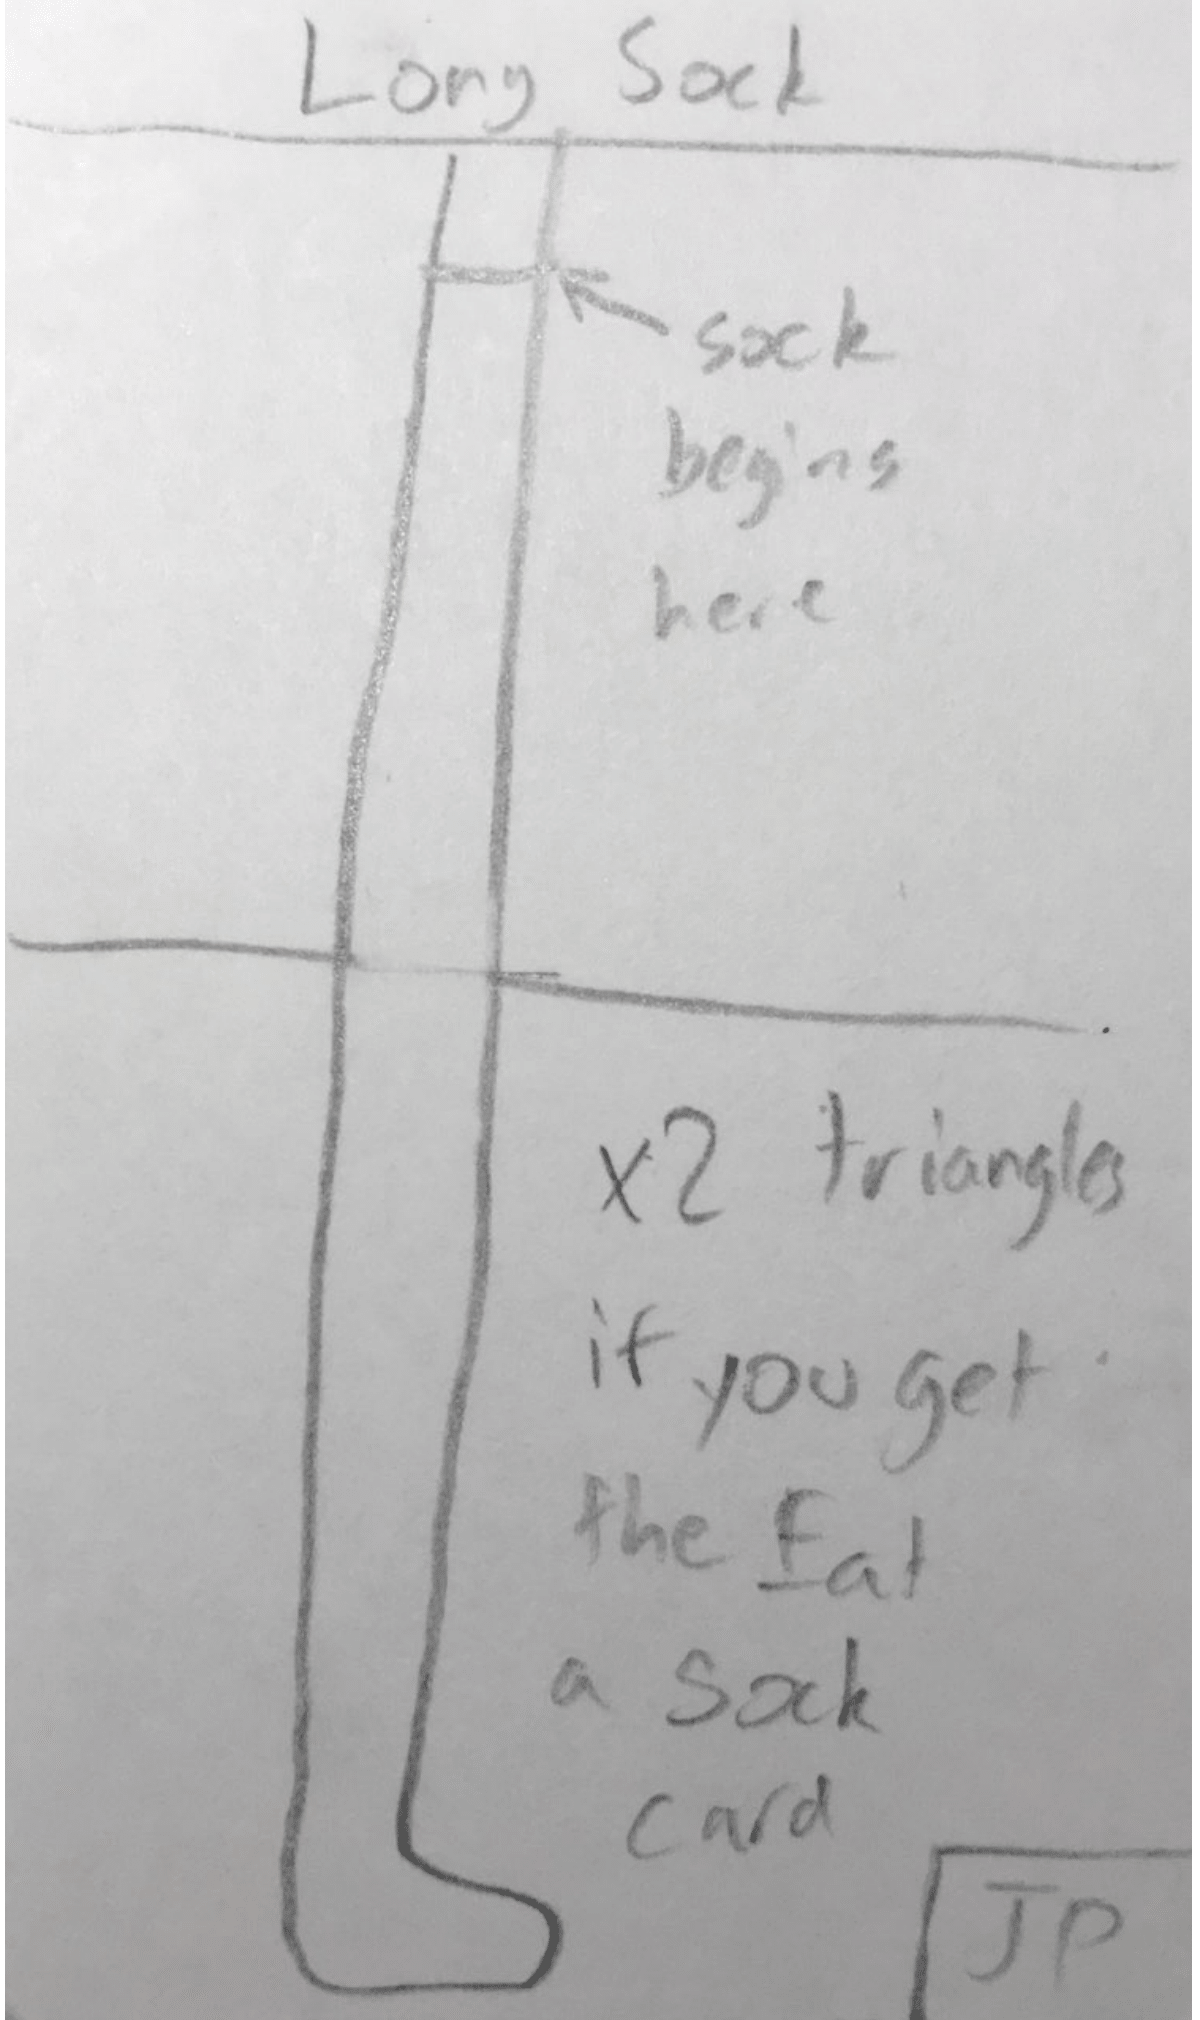 Long Sock
sock
begins
here
x2 triangles
if you get
the Eat
a Sock
card
JP